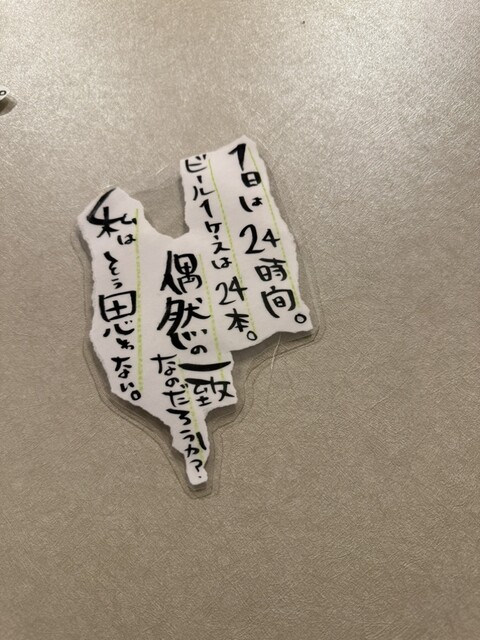 1日は24時間。
ビール1ケースは24本。
偶然の一致
なのだろうか？
私はそう思わない。